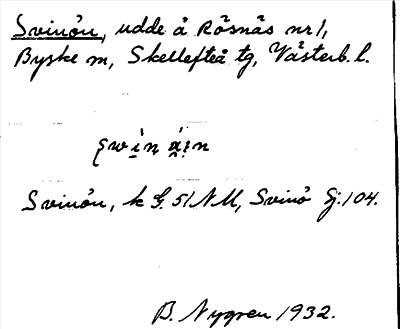 Svinön, udde å Rösnäs nr 1,
Byske m, Skellefteå tg, Västerb. l.
Svinön, k G. 51 NU, Svinö Gj. 104.
B. Nygren 1932.